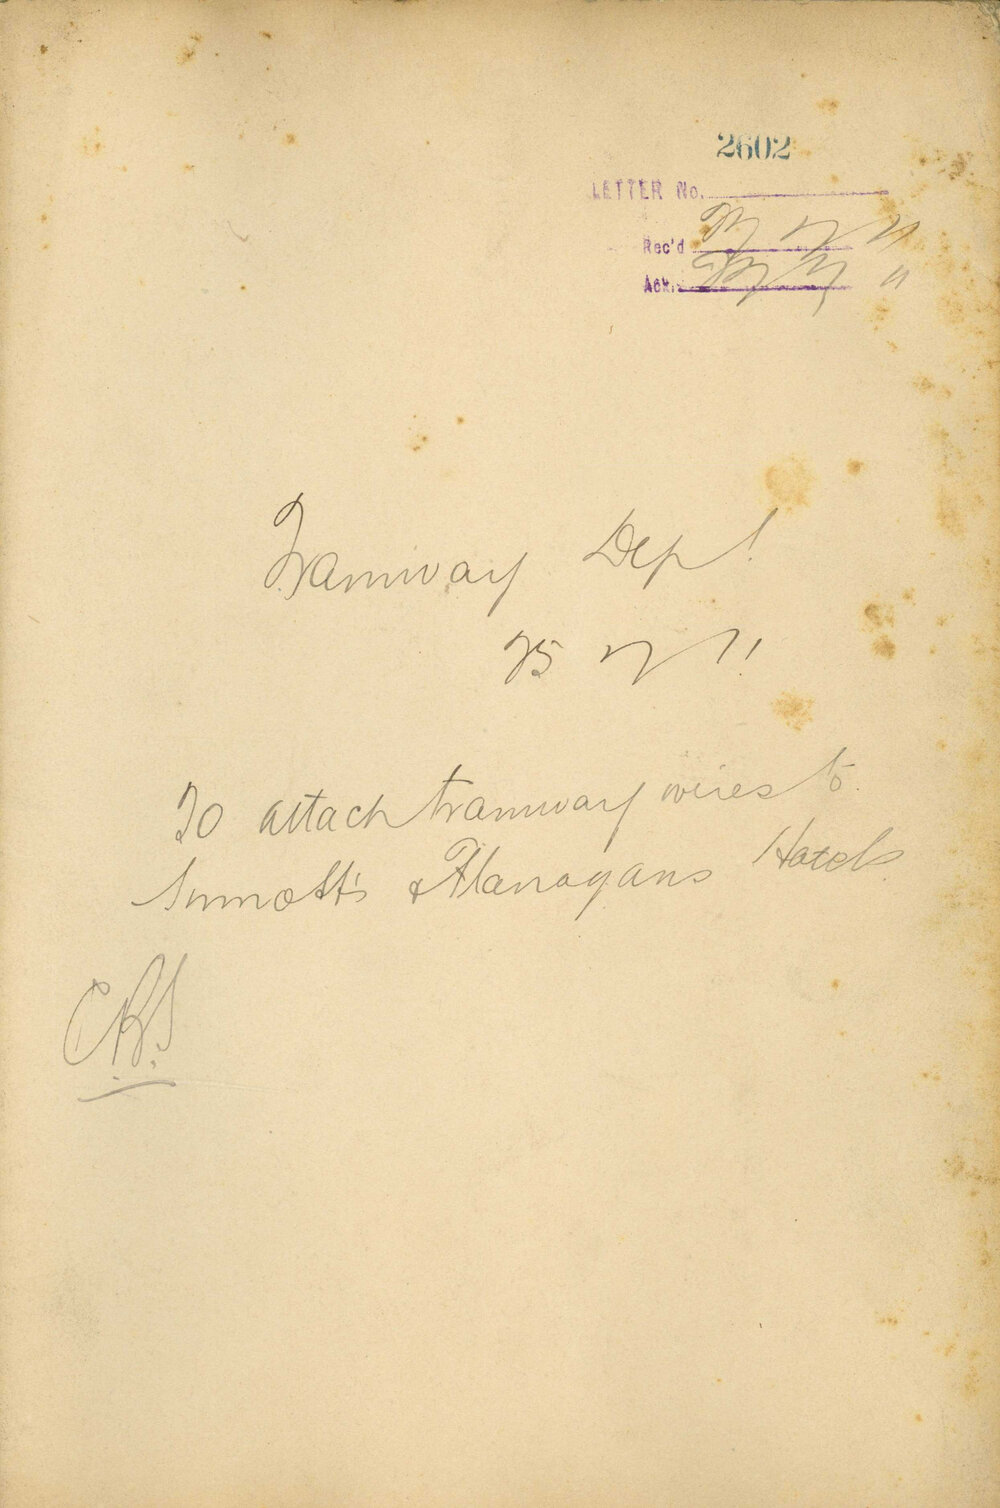 2602
LETTER No.
Rec'd 27 7 11
Ack. 11
Tramway Dept
25 7 11
To attach tramway wires to
Sinnott's & Flanagans Hotels.
CRS.